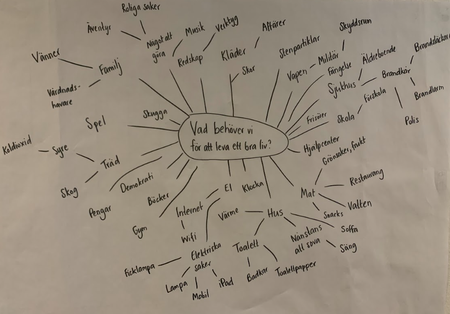 Roliga saker
Äventyr
Något att
göra
Musik
Verktyg
Redskap
Kläder
Affärer
Skor
Stenpartiklar
Skyddsrum
Vapen
Militär
Fängelse
Äldreboende
Sjukhus
Brandkår
Brandsläckare
Förskola
Brandlarm
Polis
Frisörer
Skola
Hjälpcenter
Vänner
Familj
Vårdnads-
havare
Skugga
Spel
Vad behöver vi
för att leva ett bra liv?
Koldioxid
Syre
Träd
Skog
Pengar
Demokrati
Gym
Böcker
Internet
Wifi
El
Klocka
Värme
Hus
Grönsaker, frukt
Mat
Restaurang
Vatten
Snacks
Soffa
Någonstans
att sova
Säng
Toalett
Badkar
Toalettpapper
Elektriska
saker
Ficklampa
Lampa
Mobil
iPad